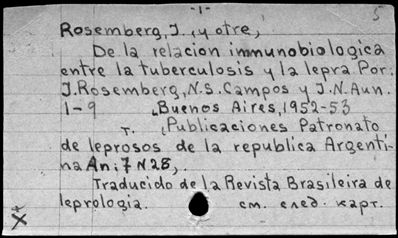 -1-
5
Rosemberg, J., y otre,
De la relacion immunobiologica
entre la tuberculosis y la lepra. Por.
J. Rosemberg, N.S. Campos y J.N. Aun.
1-9 Buenos Aires, 1952-53
т. Publicaciones Patronato
de leprosos de la republica Argenti-
na An: 7 N 28,.
Traducido de la Revista Brasileira de
leprologia. см. след. карт.
X